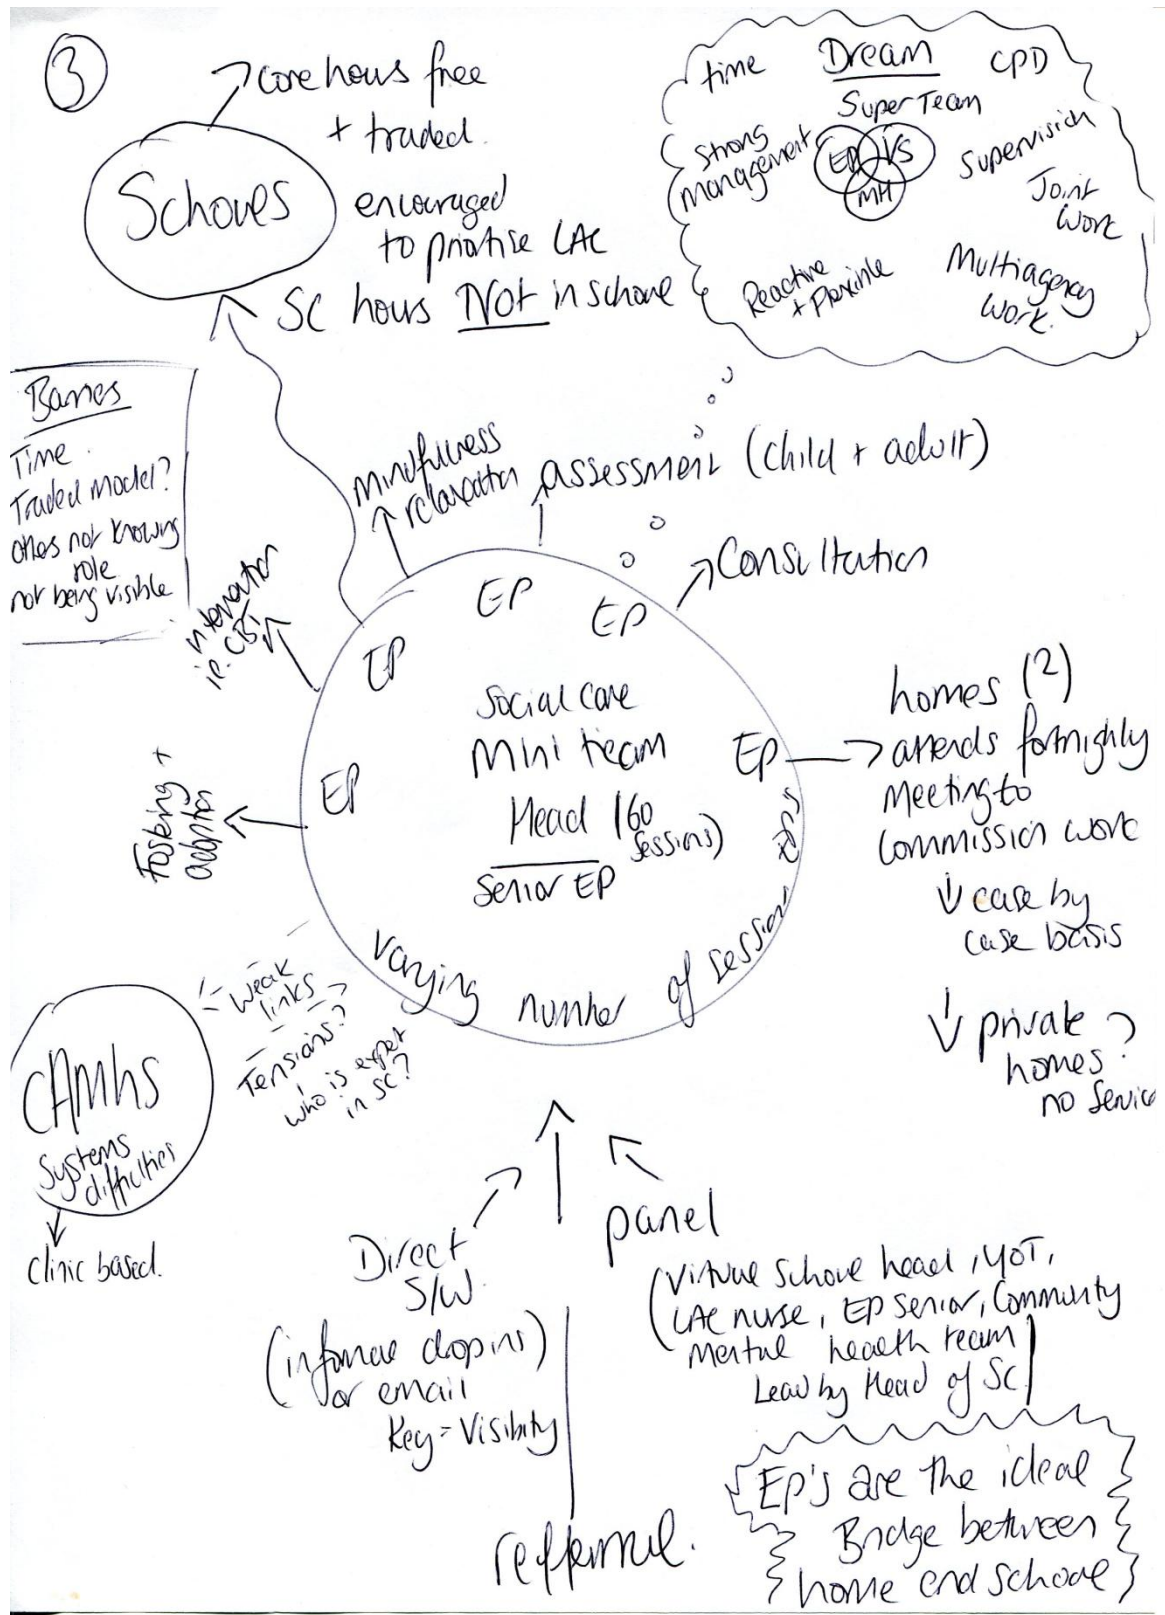 3
core hours free
+ traded.
Schools
encouraged
to prioritise LAC
SC hours NOT in school
time
Dream
CPD
Super Team
Strong
management
EP
VS
MH
Supervision
Joint
Work
Reactive
+ Flexible
Multiagency
Work.
Barriers
Time.
Traded model?
others not knowing
role
not being visible
intervention
ie. CBT
mindfullness
relaxation
assessment (child + adult)
Consultation
EP
EP
EP
EP
EP
Social care
Mini team
Head (60
sessions)
Senior EP
varying number of session
Fostering +
adoption
homes (2)
attends fortnighly
Meeting to
Commission work
case by
case basis
private
homes?
no service
Weak
links
Tensions?
who is expert
in SC?
CAMHS
Systems
difficulties
Clinic based.
Direct
S/W.
(informal drop ins)
or email
Key = Visibity
panel
(Virtual School head, YOT,
LAC nurse, EP senior, Community
Mental health team
Lead by Head of SC)
refferral.
EP's are the ideal
Bridge between
home and school